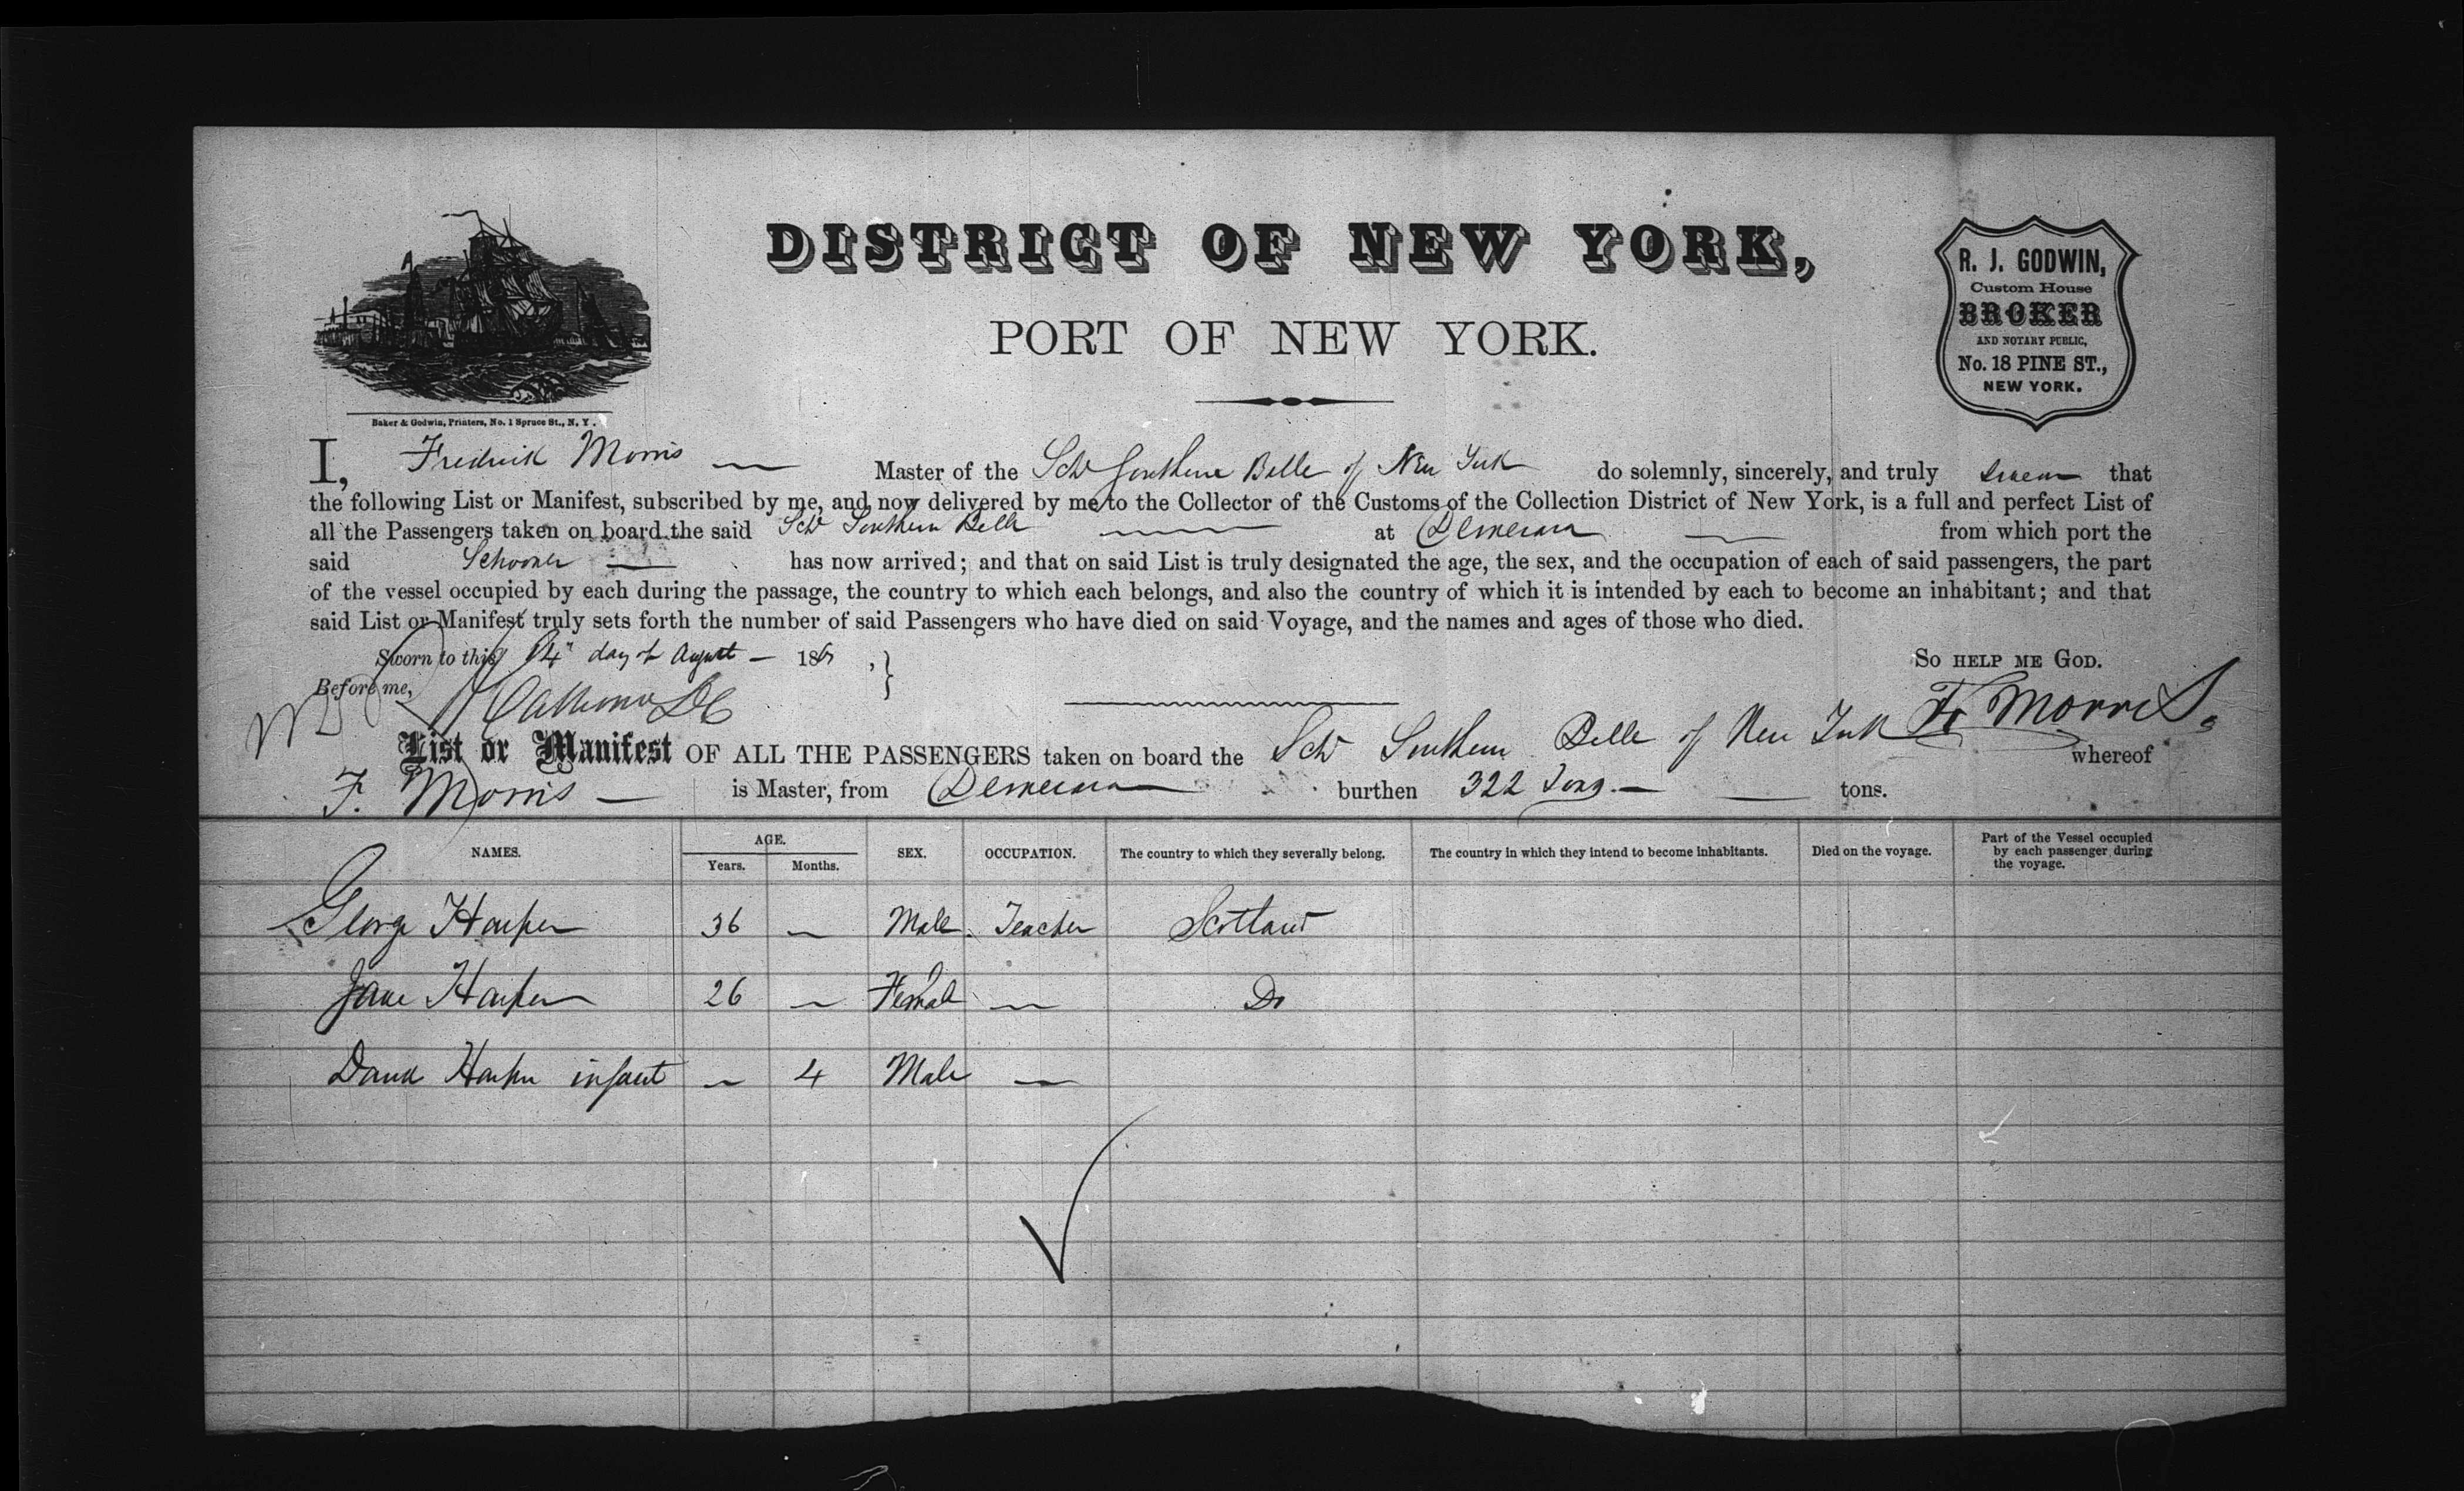 DISTRICT OF NEW YORK,
PORT OF NEW YORK.
R. J. GODWIN,
Custom House
BROKER
AND NOTARY PUBLIC,
No. 18 PINE ST.,
NEW YORK.
Baker & Godwin, Printers, No. 1 Spruce St., N. Y.
I, Fredrick Morris — Master of the Schr Southern Belle of New York do solemnly, sincerely, and truly swear that
the following List or Manifest, subscribed by me, and now delivered by me to the Collector of the Customs of the Collection District of New York, is a full and perfect List of
all the Passengers taken on board the said Schr Southern Belle — at Demerara — from which port the
said Schooner — has now arrived; and that on said List is truly designated the age, the sex, and the occupation of each of said passengers, the part
of the vessel occupied by each during the passage, the country to which each belongs, and also the country of which it is intended by each to become an inhabitant; and that
said List or Manifest truly sets forth the number of said Passengers who have died on said Voyage, and the names and ages of those who died.
Sworn to this 14" day of August — 186 , } SO HELP ME GOD.
Before me, Fr Morris.
List or Manifest OF ALL THE PASSENGERS taken on board the Schr Southern Belle of New York whereof
F. Morris — is Master, from Demerara burthen 322 Tons — tons.
NAMES. AGE. SEX. OCCUPATION. The country to which they severally belong. The country in which they intend to become inhabitants. Died on the voyage. Part of the Vessel occupied by each passenger during the voyage.
Years. Months.
George Harper 36 — Male Teacher Scotland
Jane Harper 26 — Female — Do
David Harper infant — 4 Male —